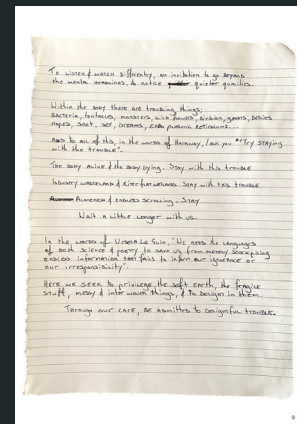 To listen & watch differently, an invitation to go beyond
the mental headlines, to notice quieter qualities.
Within the body there are troubling things:
Bacteria, tentacles, monsters, wild
Hopes, snot, sex, dreams,
Add to all of this, in the words of Haraway, I ask you "Try staying
with the trouble".
The body alive & the body dying. Stay with this trouble
Industry wasteland & river flat wetlands. Stay with this trouble
& endless scrolling. Stay
Wait a little longer with us.
In the words of Ursula Le Guin, "We need the languages
of both science & poetry to save us from merely stockpiling
endless information that fails to inform our ignorance or
our irresponsibility".
Here we seek to privilege the soft earth, the fragile
stuff, messy & interwoven things, & to design in them.
Through our care, be admitted to designful trouble.
9